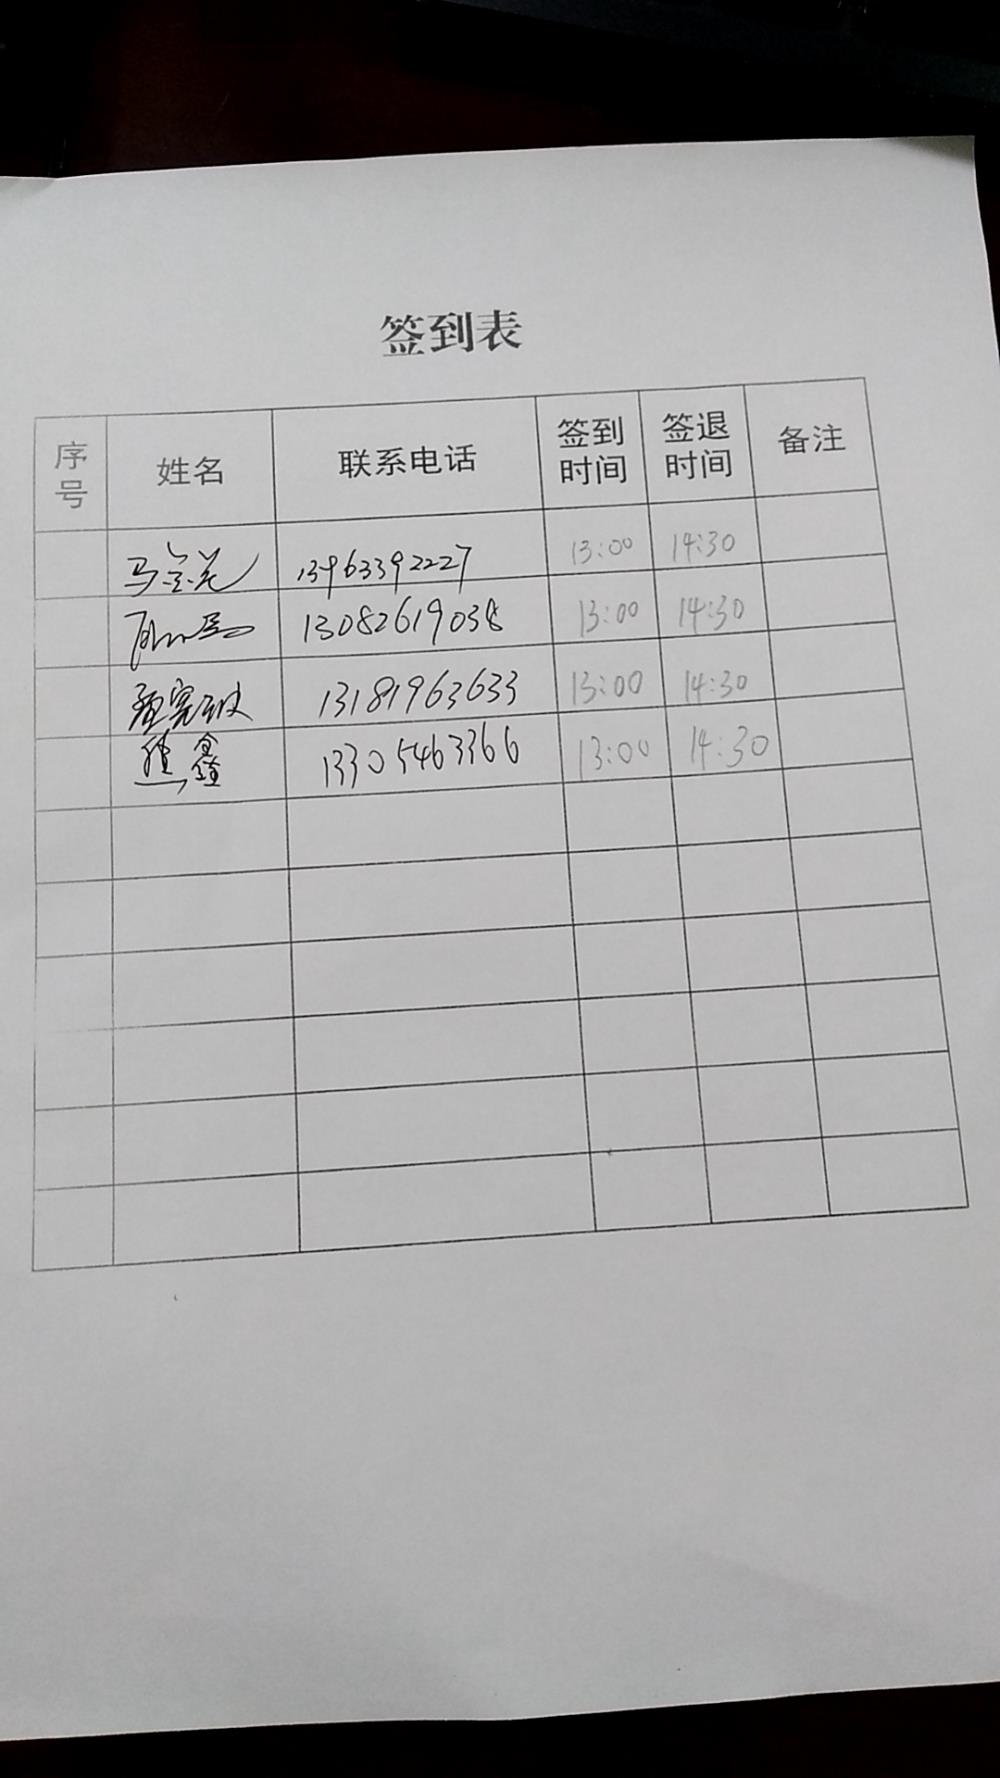 签到表
序号 姓名 联系电话 签到时间 签退时间 备注
13963392227 13:00 14:30
13082619038 13:00 14:30
13181963633 13:00 14:30
鑫 13305463366 13:00 14:30